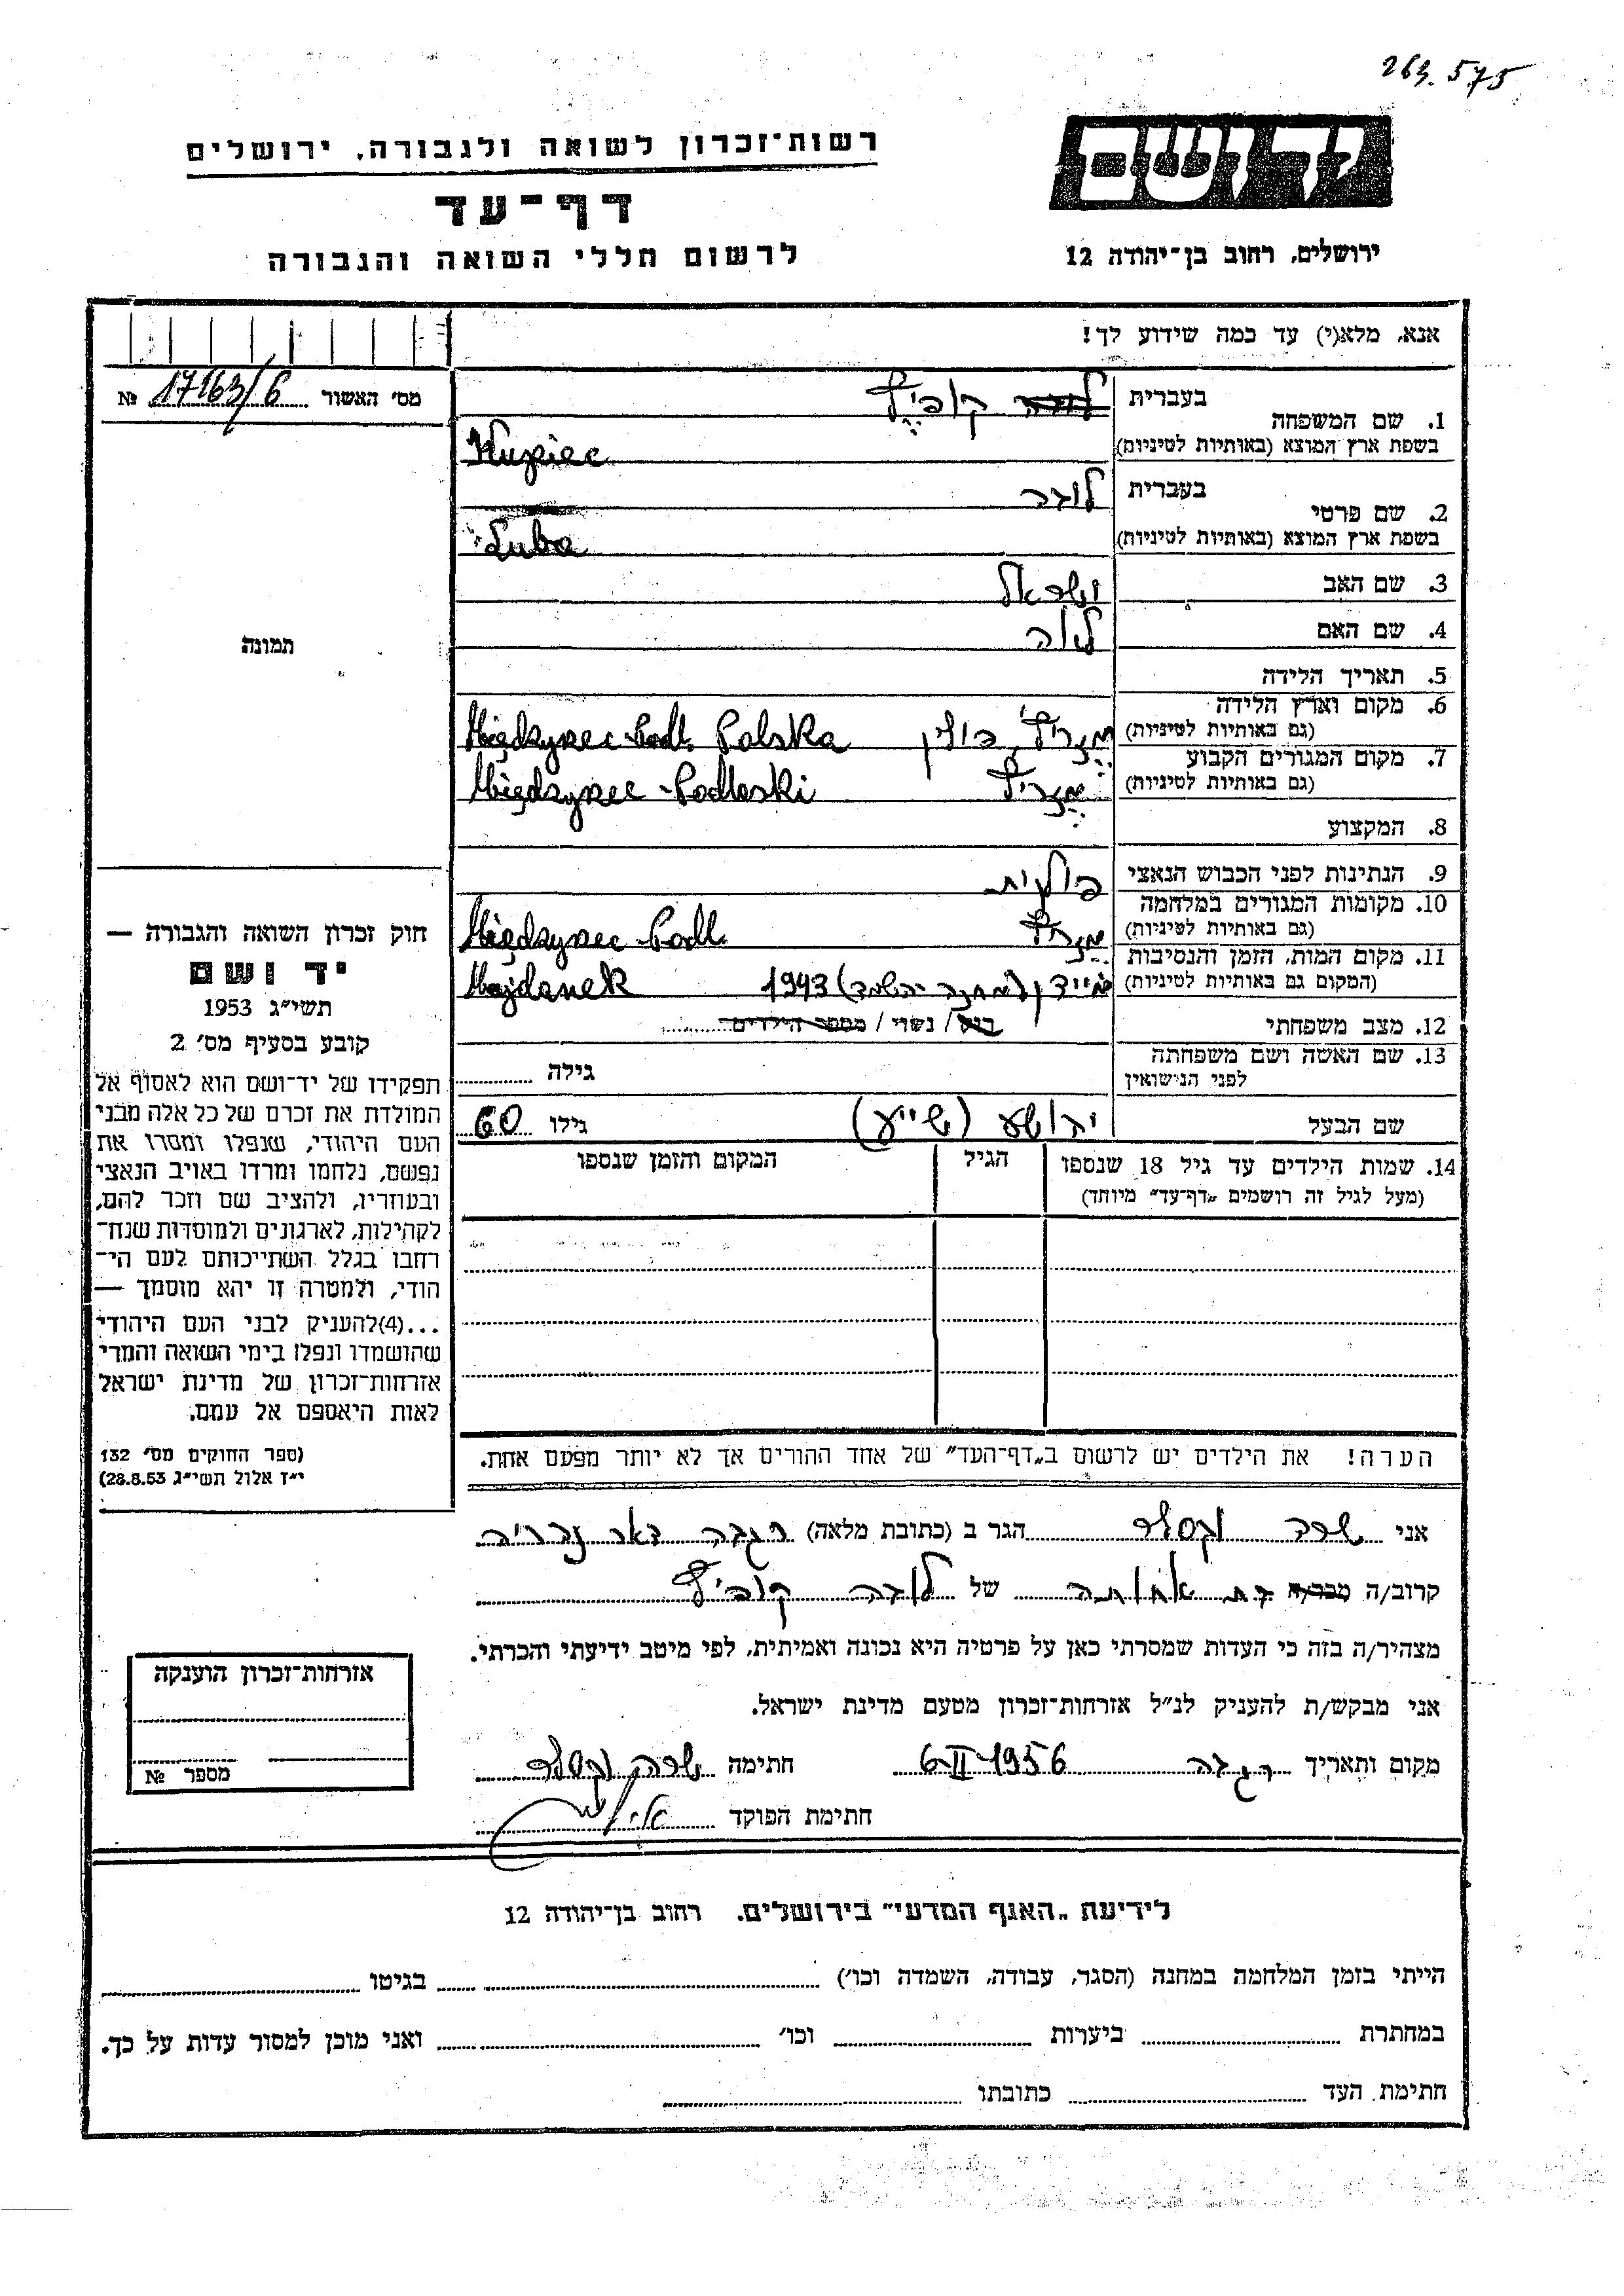 263.575
ידושם
רשות־זכרון לשואה ולגבורה, ירושלים
דף־עד
לרשום חללי השואה והגבורה
ירושלים, רחוב בן־יהודה 12
אנא, מלא(י) עד כמה שידוע לך!
מס׳ האשור 17163/6 №
1. שם המשפחה בעברית קופיץ
בשפת ארץ המוצא (באותיות לטיניות) Kupiec
2. שם פרטי בעברית לובה
בשפת ארץ המוצא (באותיות לטיניות) Luba
3. שם האב ישראל
4. שם האם לאה
5. תאריך הלידה
6. מקום וארץ הלידה (גם באותיות לטיניות) מזריץ, פולין Międzyrzec-Podl. Polska
7. מקום המגורים הקבוע (גם באותיות לטיניות) מזריץ Międzyrzec-Podlaski
8. המקצוע
9. הנתינות לפני הכבוש הנאצי פולנית
10. מקומות המגורים במלחמה (גם באותיות לטיניות) מזריץ Międzyrzec-Podl.
11. מקום המות, הזמן והנסיבות (המקום גם באותיות לטיניות) (מחנה השמד) 1943 Majdanek
12. מצב משפחתי רוק / נשוי / מספר הילדים
13. שם האשה ושם משפחתה לפני הנישואין גילה
שם הבעל יהושע (שייע) גילו 60
14. שמות הילדים עד גיל 18 שנספו הגיל המקום והזמן שנספו
(מעל לגיל זה רושמים „דף־עד״ מיוחד)
הערה! את הילדים יש לרשום ב„דף־העד״ של אחד ההורים אך לא יותר מפעם אחת.
תמונה
חוק זכרון השואה והגבורה —
יד ושם
תשי״ג 1953
קובע בסעיף מס׳ 2
תפקידו של יד־ושם הוא לאסוף אל
המולדת את זכרם של כל אלה מבני
העם היהודי, שנפלו ומסרו את
נפשם, נלחמו ומרדו באויב הנאצי
ובעוזריו, ולהציב שם וזכר להם,
לקהילות, לארגונים ולמוסדות שנח־
רבו בגלל השתייכותם לעם הי־
הודי, ולמטרה זו יהא מוסמך —
...(4)להעניק לבני העם היהודי
שהושמדו ונפלו בימי השואה והמרי
אזרחות־זכרון של מדינת ישראל
לאות היאספם אל עמם.
(ספר החוקים מס׳ 132
י״ז אלול תשי״ג 28.8.53)
אני שרה וקסלר הגר ב (כתובת מלאה) רגבה דאר נהריה
קרוב/ה מכר/ה בת אחותה של לובה קופיץ
מצהיר/ה בזה כי העדות שמסרתי כאן על פרטיה היא נכונה ואמיתית, לפי מיטב ידיעתי והכרתי.
אני מבקש/ת להעניק לנ״ל אזרחות־זכרון מטעם מדינת ישראל.
מקום ותאריך רגבה 6 II 1956 חתימה שרה וקסלר
חתימת הפוקד
אזרחות־זכרון הוענקה
מספר №
לידיעת „האגף המדעי״ בירושלים, רחוב בן־יהודה 12
הייתי בזמן המלחמה במחנה (הסגר, עבודה, השמדה וכו׳) בגיטו
במחתרת ביערות וכו׳ ואני מוכן למסור עדות על כך.
חתימת העד כתובתו